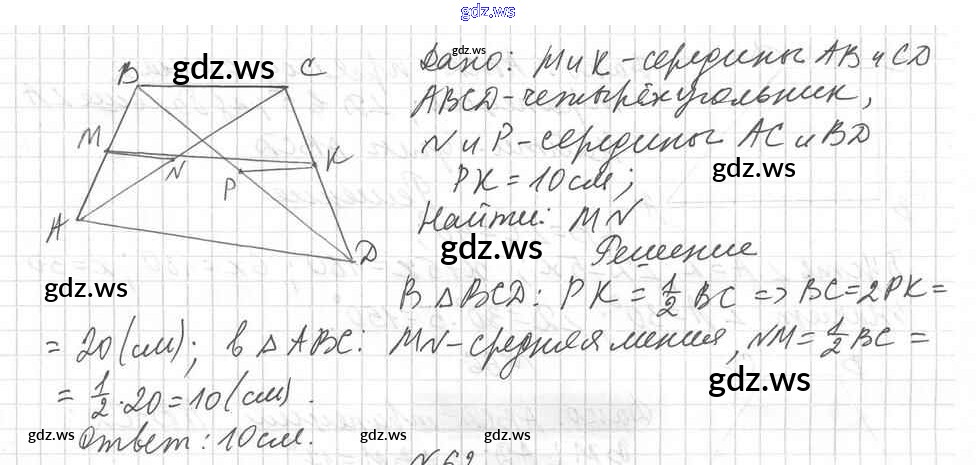 gdz.ws
gdz.ws
Дано: M и K - середины AB и CD
B gdz.ws C
ABCD - четырёхугольник,
M
N и P - середины AC и BD
N P K
gdz.ws
PK = 10 см;
A
Найти: MN
gdz.ws
Решение
D
gdz.ws
В △ BCD: PK = 1/2 BC => BC = 2PK =
= 20 (см); в △ ABC: MN - средняя линия, NM = 1/2 BC =
gdz.ws
= 1/2 · 20 = 10 (см).
gdz.ws gdz.ws gdz.ws
Ответ: 10 см.
N 62